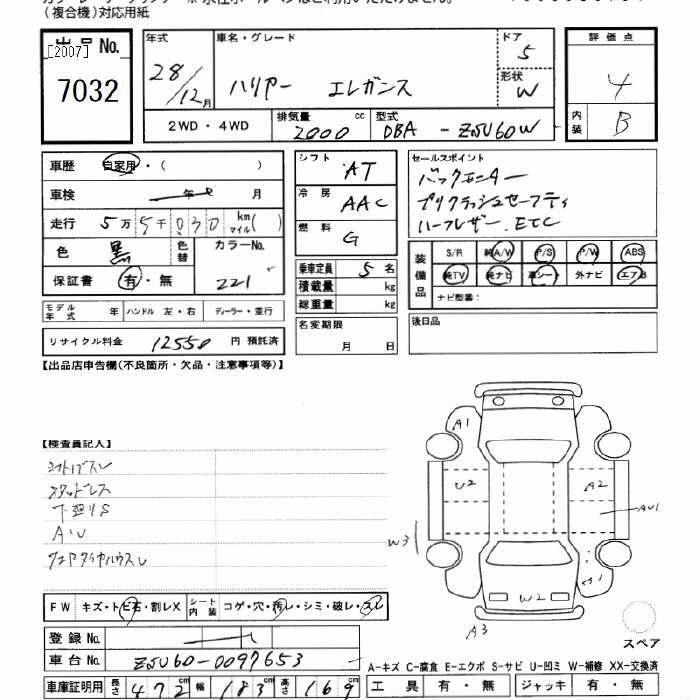 (複合機)対応用紙
出品 No.
[2007]
7032
年式 28/12月
車名・グレード ハリアー エレガンス
ドア 5
形状 W
評価点 4
内装 B
2WD・4WD
排気量 2000 cc
型式 DBA - ZSU60W
車歴 自家用・( )
車検 年 月
走行 5万 5千 030 km マイル( )
色 黒 色替
カラーNo. 221
保証書 有・無
モデル年式 年 ハンドル 左・右 ディーラー・並行
リサイクル料金 12550 円 預託済
シフト AT
冷房 AAC
燃料 G
乗車定員 5 名
積載量 kg
総重量 kg
名変期限 月 日
セールスポイント
バックモニター
プリクラッシュセーフティ
ハーフレザー.ETC
装備品
S/R 純A/W P/S P/W ABS
純TV 純ナビ 革シート 外ナビ エアB
ナビ型番:
後日品
【出品店申告欄(不良箇所・欠品・注意事項等)】
【検査員記入】
スタッドレス
下廻りS
A・U
A1
U2
A2
AU1
W3
A1
W2
A3
スペア
FW キズ・トビ石・割レX
シート内装 コゲ・穴・汚レ・シミ・破レ・スレ
登録 No.
車台 No. ZSU60-0097653
車庫証明用 長さ 472 幅 183 高さ 169
A-キズ C-腐食 E-エクボ S-サビ U-凹ミ W-補修 XX-交換済
工具 有・無 ジャッキ 有・無